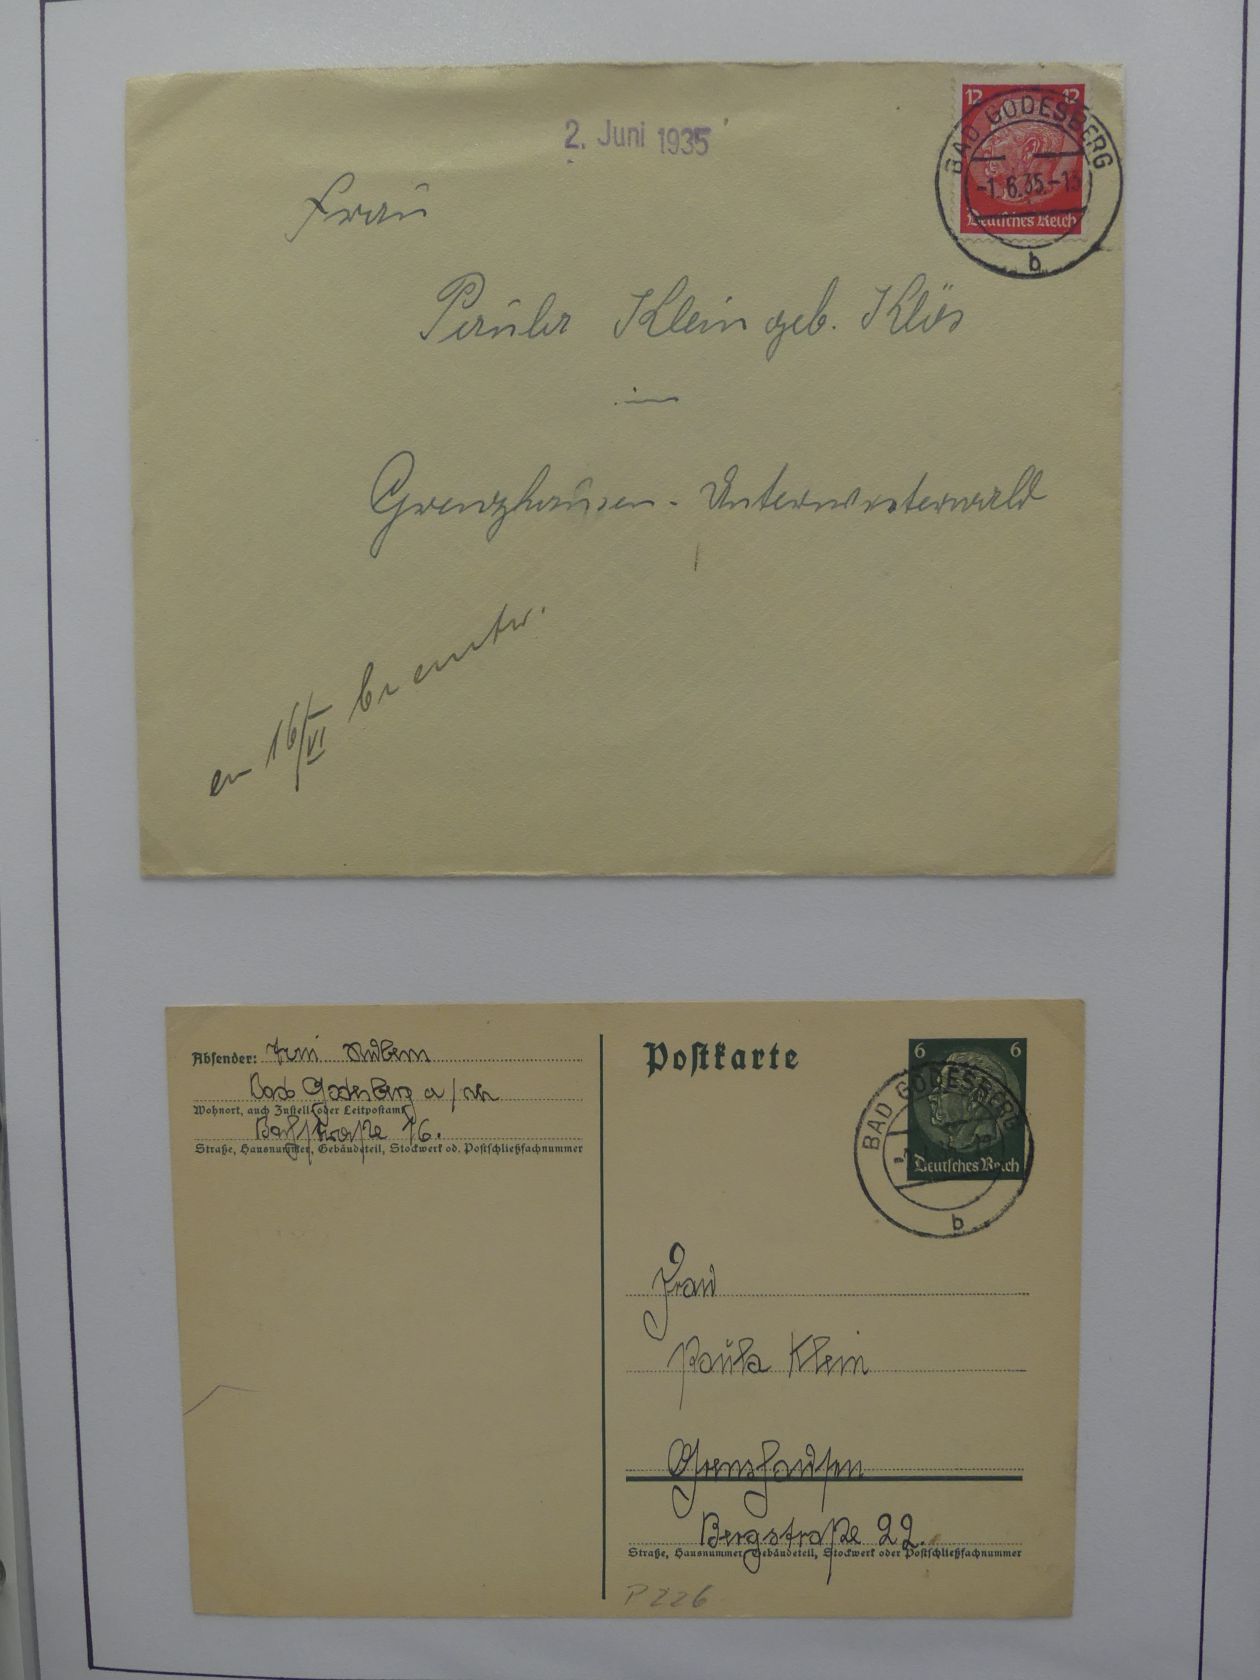 2. Juni 1935
12 12
BAD GODESBERG
-1.6.35.-1
Deutsches Reich
b
Frau
Paula Klein geb. Klös
in
Grenzhausen - Unterwesterwald
16/VI
Absender:
Bad Godesberg a/Rh
Wohnort, auch Zustell- oder Leitpostamt
Bachstraße 16.
Straße, Hausnummer, Gebäudeteil, Stockwerk od. Postschließfachnummer
Postkarte
6 6
BAD GODESBERG
Deutsches Reich
b
Frau
Paula Klein
Grenzhausen
Bergstraße 22.
Straße, Hausnummer, Gebäudeteil, Stockwerk oder Postschließfachnummer
P 226